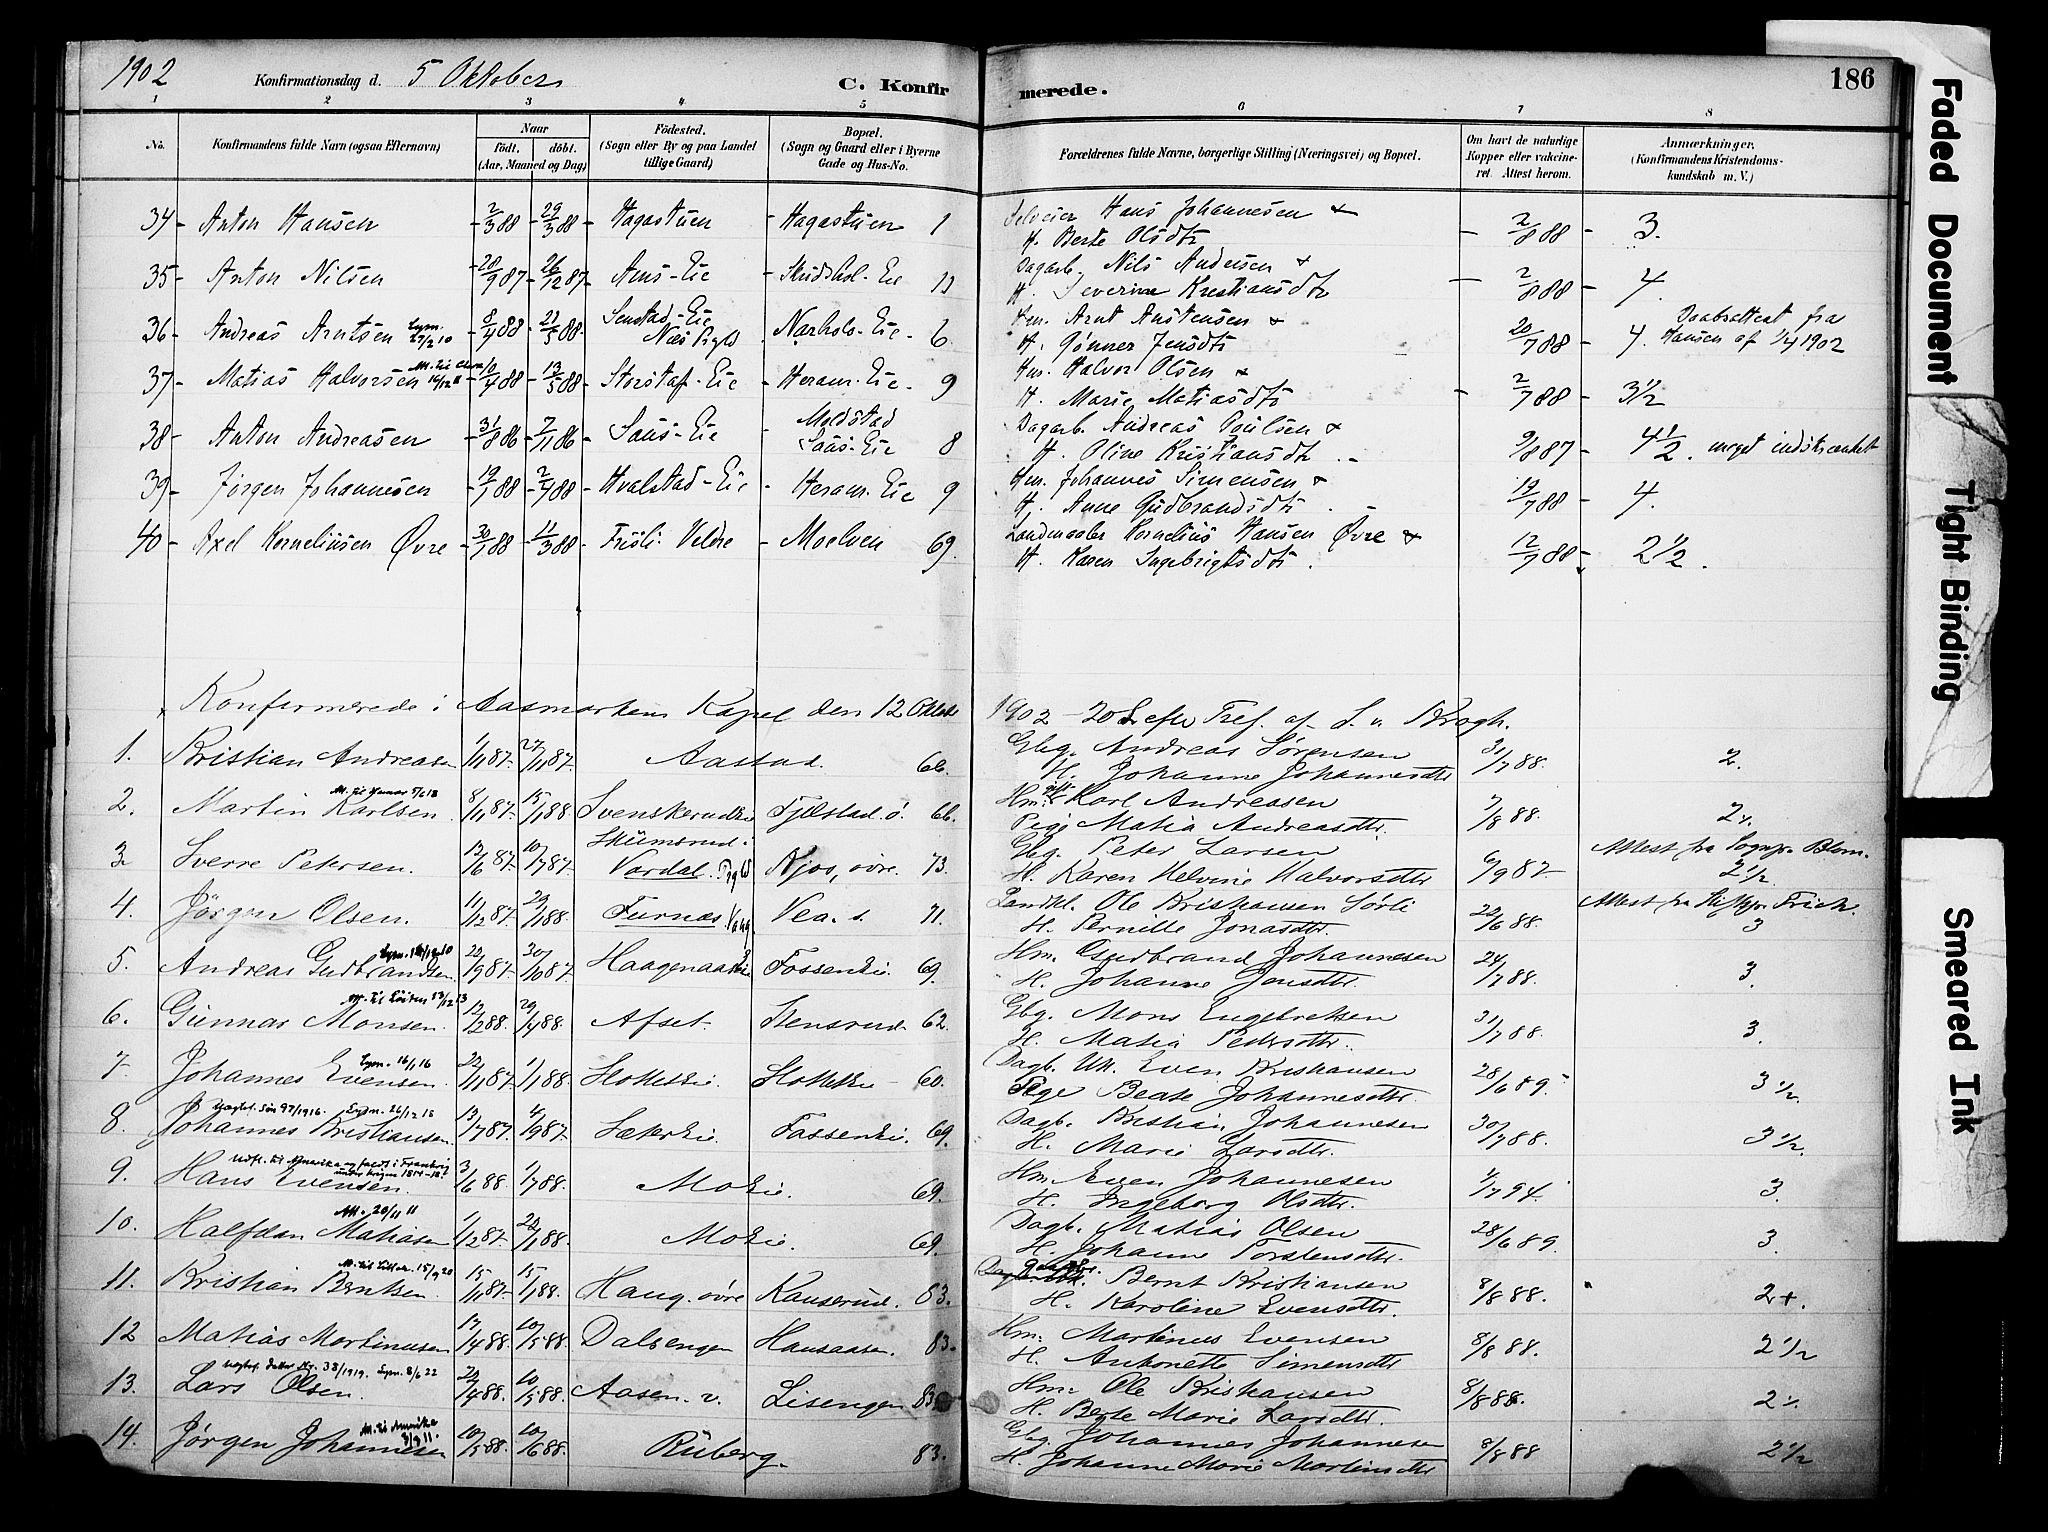 1902 Konfirmationsdag d. 5 Oktober C. Konfirmerede. 186
1 2 3 4 5 6 7 8
No. Konfirmandens fulde Navn (ogsaa Efternavn) Naar Födt. döbt. (Aar, Maaned og Dag) Födested. (Sogn eller By og paa Landet tillige Gaard) Bopæl. (Sogn og Gaard eller i Byerne Gade og Hus-No. Forældrenes fulde Navne, borgerlige Stilling (Næringsvei) og Bopæl. Om havt de naturlige Kopper eller vakcineret. Attest herom. Anmærkninger. (Konfirmandens Kristendomskundskab m. V.)
34 - Anton Hansen - 2/3 88 - 29/3 88 - Hagastuen - Hagastuen 1 Hans Johannesen - 2/8 88 - 3.
H. Berte Olsdtr
35 - Anton Nilsen - 20/9 87 - 26/12 87 - Ams-Eie - Skudshol-Eie 13 Dagarb. Nils Andersen - 2/8 88 - 4.
H. Severine Kristiansdtr
36 - Andreas Arntsen 8/4 88 - 21/5 88 - Senstad-Eie Næs Prgld - Narhols-Eie 6 Hm. Arnt Anstensen 20/7 88 - 4. Daabsattest fra Hansen af 1/4 1902
H. Gønner Jensdtr
37 - Matias Halvorsen 10/4 88 - 13/5 88 - Storstaf-Eie - Heram-Eie - 9 Hm. Halvor Olsen - 2/7 88 - 3 1/2
H. Marie Matiasdtr
38 - Anton Andreasen - 31/8 86 - 7/11 86 - Saus-Eie - Moldstad Saus-Eie 8 Dagarb. Andreas Poulsen 9/8 87 - 4 1/2. meget indskrænket
H. Oline Kristiansdtr
39 - Jørgen Johannesen - 19/1 88 - 2/4 88 - Hvalstad-Eie - Heram. Eie 9 Hm. Johannes Simensen 19/7 88 - 4.
H. Anne Gudbrandsdtr
40 - Axel Korneliusen Øvre - 30/1 88 - 11/3 88 - Frisli Veldre - Moelven 69. Landmaaler Kornelius Hansen Øvre 12/7 88 - 2 1/2.
H. Karen Ingebrigtsdtr.
Konfirmerede i Aasmarkens Kapel den 12 Oktober 1902 - 20 S. efter Tref. af S. v. Krogh.
1. Kristian Andreasen 1/11 87. 27/11 87. Aastad. 66. Gbg. Andreas Sørensen 31/7 88. 2.
H. Johanne Johannesdtr
2. Martin Karlsen. 8/11 87. 15/1 88. Svenskerudeie Fjælstad ø. 66. Hm. Karl Andreasen 2/8 88. 2 x.
Pige Matia Andreasdtr.
3. Sverre Petersen. 13/6 87. 10/7 87. Skumsrud i Vardal Prgld Njøs, øvre. 73. Gbg. Peter Larsen 6/9 87. Attest fra Sognpr. Blom. 2 1/2.
H. Karen Helvine Halvorsdtr
4. Jørgen Olsen. 11/12 87. 29/1 88. Furnæs Vea. s. 71. Landhl. Ole Kristiansen Sørli 20/6 88. Attest fra Stiftspr. Frich. 3
H. Pernille Jonasdtr.
5. Andreas Gudbrandsen. 22/9 87. 30/10 87. Haagenaaseie Fossenkie. 69. Hm. Gudbrand Johannesen 24/7 88. 3.
H. Johanne Jonsdtr.
6. Gunnar Monsen. 12/2 88. 29/4 88. Afset. Stensrud. 62. Gbg. Mons Engebretsen 31/7 88. 3.
H. Matia Pedersdtr.
7. Johannes Evensen. Lysn. 16/1 16 22/11 87. 1/1 88. Slottekie. Slottekie - 60. Dagb. Uk. Even Kristiansen 28/6 89. 3 1/2.
Pige Beate Johannesdtr.
8. Uægtef. Søn 97/1916. Lysn. 26/12 15 Johannes Kristiansen. 13/7 87. 4/9 87. Sækskie. Fossenkie. 69. Dagb. Kristian Johannesen 30/7 88. 3 1/2.
H. Marie Larsdtr.
9. Udfl. til Amerika og faldt i Frankrig under krigen 1914-18. Hans Evensen. 3/6 88. 1/7 88. Mokie. 69. Hm. Even Johannesen 1/7 94. 3.
H. Ingeborg Olsdtr.
10. Att. 20/11 11 Halfdan Matiasen 1/12 87. 22/1 88. Mokie. 69. Dagb. Matias Olsen 28/6 89. 3.
H. Johanne Torstensdtr.
11. Kristian Berntsen. 15/9 20 15/11 87. 15/1 88. Haug. øvre Kauserud. 83. Bernt Kristiansen 8/8 88. 2+.
H. Karoline Evensdtr.
12 Matias Martinusen 17/4 88. 10/5 88. Dalsengen Hausaasen. 83. Hm. Martinus Evensen 8/8 88. 2 1/2
H. Antonette Simensdtr
13. Uægtef. datter No. 38/1919. Lysn. 8/6 22 Lars Olsen. 20/4 88. 10/5 88. Aasen. v. Lisengen 83. Hm. Ole Kristiansen 8/8 88. 2 ÷.
H. Berte Marie Larsdtr.
14. Jørgen Johannesen 10/5 88. 10/6 88. Ruberg. 83. Gbg. Johannes Johannesen 8/8 88 2 1/2
H. Johanne Marie Martinsdtr
Faded Document
Tight Binding
Smeared Ink